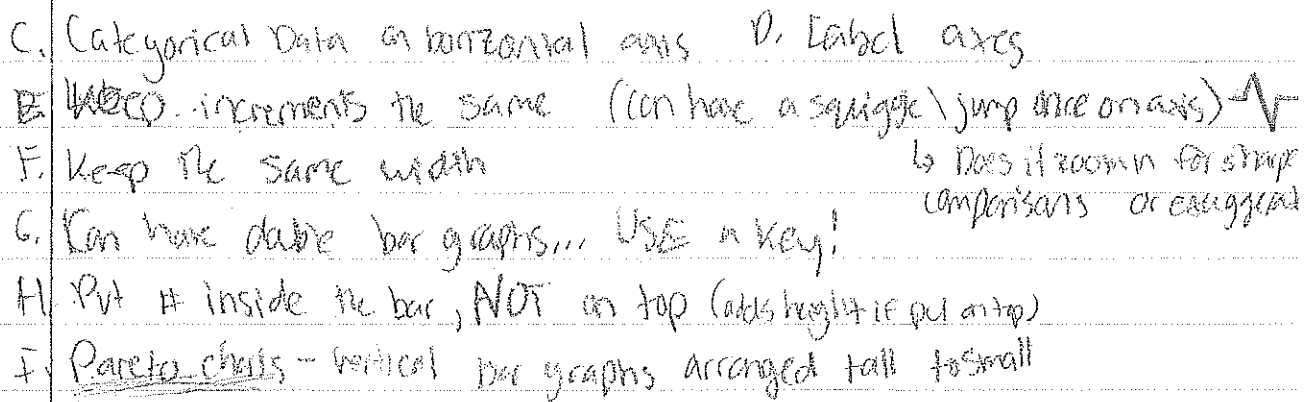 C. Categorical Data on horizontal axis D. Label axes
E. Keep increments the same (can have a squiggle \ jump once on axis)
F. Keep the same width
↳ Does it zoom in for sharp
comparisons or exaggerat
G. Can have double bar graphs... USE a key!
H. Put # inside the bar, NOT on top (adds height if put on top)
I. Pareto charts - vertical bar graphs arranged tall to small